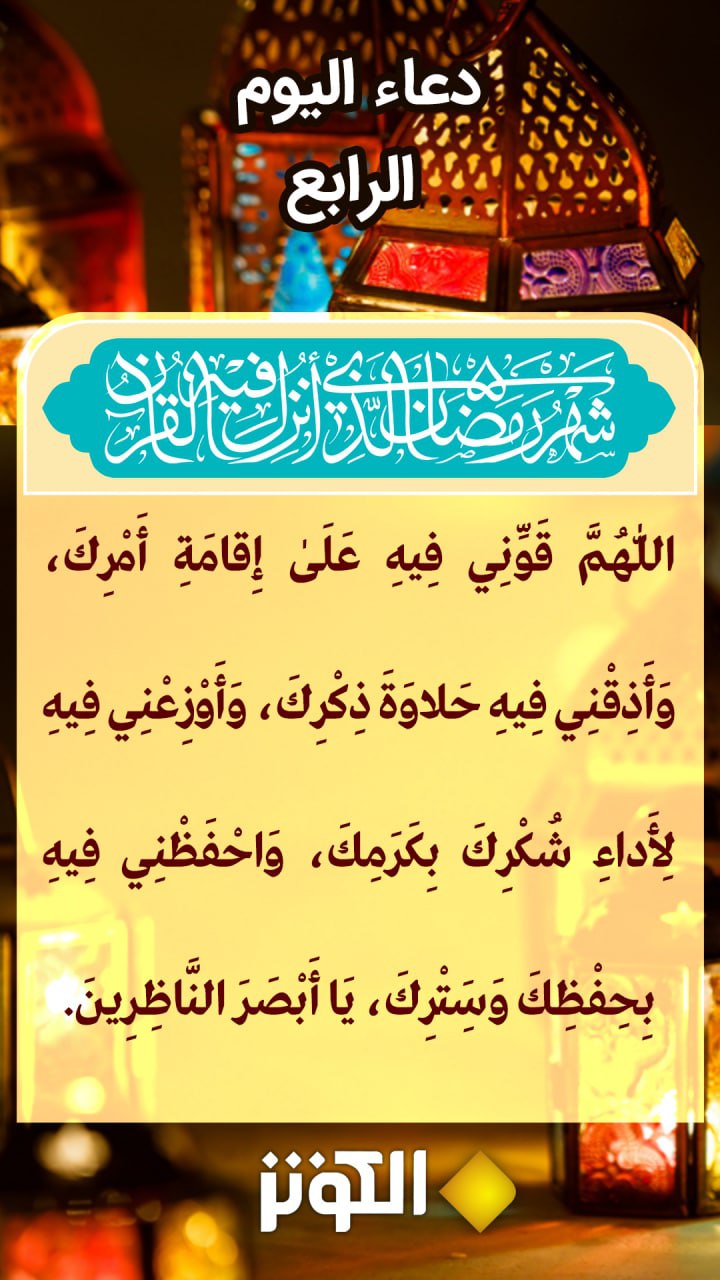 دعاء اليوم
الرابع
شهر رمضان الذي أنزل فيه القرآن
اللّٰهُمَّ قَوِّنِي فِيهِ عَلَىٰ إِقامَةِ أَمْرِكَ،
وَأَذِقْنِي فِيهِ حَلاوَةَ ذِكْرِكَ، وَأَوْزِعْنِي فِيهِ
لِأَداءِ شُكْرِكَ بِكَرَمِكَ، وَاحْفَظْنِي فِيهِ
بِحِفْظِكَ وَسَِتْرِكَ، يَا أَبْصَرَ النَّاظِرِينَ.
الكوثر